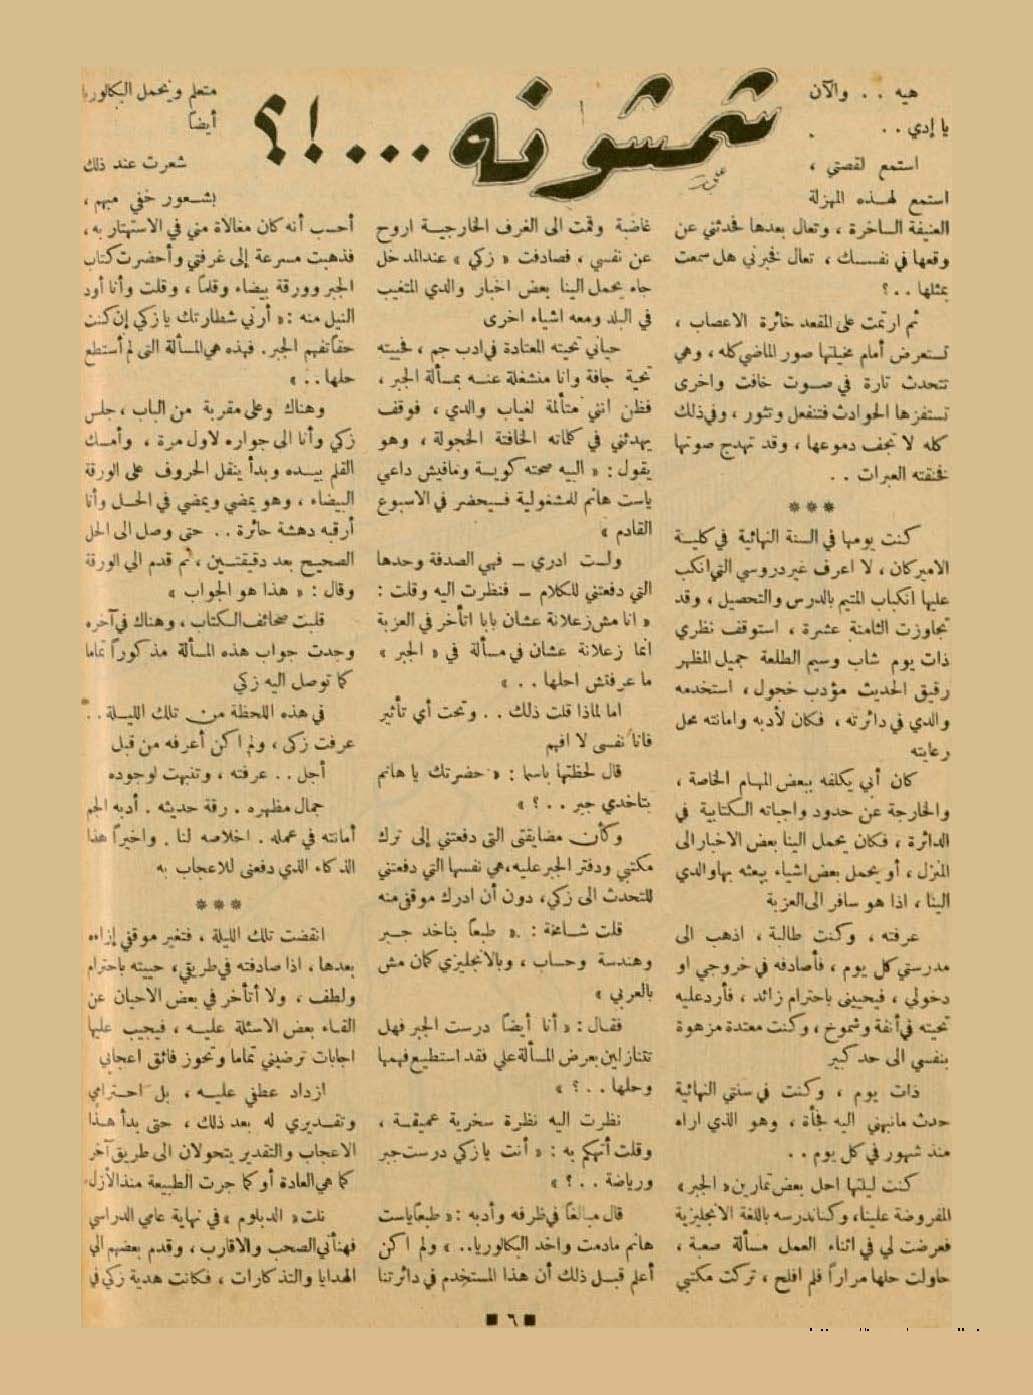 شمشونه ...!؟
هيه . . والآن
يا إدي . .
استمع لقصتي ،
استمع لهذه المهزلة
العنيفة الساخرة ، وتعال بعدها فحدثني عن
وقعها في نفسك ، تعال فخبرني هل سمعت
بمثلها . . ؟
ثم ارتمت على المقعد خائرة الاعصاب ،
تستعرض أمام مخيلتها صور الماضي كله ، وهي
تتحدث تارة في صوت خافت واخرى
تستفزها الحوادث فتنفعل وتثور ، وفي ذلك
كله لا تجف دموعها ، وقد تهدج صوتها
فخنقته العبرات . .
***
كنت يومها في السنة النهائية في كلية
الاميركان ، لا اعرف غير دروسي التي انكب
عليها انكباب المتيم بالدرس والتحصيل ، وقد
تجاوزت الثامنة عشرة ، استوقف نظري
ذات يوم شاب وسيم الطلعة جميل المظهر
رقيق الحديث مؤدب خجول ، استخدمه
والدي في دائرته ، فكان لأدبه وامانته محل
رعايته
كان أبي يكلفه ببعض المهام الخاصة ،
والخارجة عن حدود واجباته الكتابية في
الدائرة ، فكان يحمل الينا بعض الاخبار الى
المنزل ، أو يحمل بعض اشياء يبعثه بها والدي
الينا ، اذا هو سافر الى العزبة
عرفته ، وكنت طالبة ، اذهب الى
مدرستي كل يوم ، فأصادفه في خروجي او
دخولي ، فيحييني باحترام زائد ، فأرد عليه
تحيته في أنفة وشموخ ، وكنت معتدة مزهوة
بنفسي الى حد كبير
ذات يوم ، وكنت في سنتي النهائية
حدث مانبهني اليه فجأة ، وهو الذي اراه
منذ شهور في كل يوم . .
كنت ليلتها احل بعض تمارين « الجبر »
المفروضة علينا، وكنا ندرسه باللغة الانجليزية
فعرضت لي في اثناء العمل مسألة صعبة ،
حاولت حلها مراراً فلم افلح ، تركت مكتبي
غاضبة وقمت الى الغرف الخارجية اروح
عن نفسي ، فصادفت « زكي » عند المدخل
جاء يحمل الينا بعض اخبار والدي المتغيب
في البلد ومعه اشياء اخرى
حياني تحيته المعتادة في ادب جم ، فحييته
تحية جافة وانا منشغلة عنه بمسألة الجبر ،
فظن انني متألمة لغياب والدي ، فوقف
يهدئني في كلماته الخافتة الخجولة ، وهو
يقول : « البيه صحته كويسة ومافيش داعي
ياست هانم للمشغولية فسيحضر في الاسبوع
القادم »
ولست ادري – فهي الصدفة وحدها
التي دفعتني للكلام – فنظرت اليه وقلت :
« انا مش زعلانة عشان بابا اتأخر في العزبة
انما زعلانة عشان في مسألة في « الجبر »
ما عرفتش احلها . . »
اما لماذا قلت ذلك . . وتحت أي تأثير
فانا نفسي لا افهم
قال لحظتها باسما : « حضرتك يا هانم
بتاخدي جبر . . ؟ »
وكأن مضايقتى التى دفعتني إلى ترك
مكتبي ودفتر الجبر عليه، هي نفسها التي دفعتني
للتحدث الى زكي، دون أن ادرك موقفي منه
قلت شامخة : « طبعاً بناخد جبر
وهندسة وحساب ، وبالانجليزي كمان مش
بالعربي »
فقال : « أنا أيضاً درست الجبر فهل
تتنازلين بعرض المسألة علي فقد استطيع فهمها
وحلها . . ؟ »
نظرت اليه نظرة سخرية عميقة ،
وقلت أتهكم به : « أنت يا زكي درست جبر
ورياضة . . ؟ »
قال مبالغاً في ظرفه وأدبه : « طبعاً ياست
هانم مادمت واخد البكالوريا.. » ولم اكن
أعلم قبل ذلك أن هذا المستخدم في دائرتنا
متعلم ويحمل البكالوريا
أيضاً
شعرت عند ذلك
بشعور خفي مبهم ،
أحسب أنه كان مغالاة مني في الاستهتار به ،
فذهبت مسرعة إلى غرفتي وأحضرت كتاب
الجبر وورقة بيضاء وقلماً ، وقلت وأنا أود
النيل منه : « أرني شطارتك يا زكي إن كنت
حقاً تفهم الجبر. فهذه هي المسألة التى لم أستطع
حلها . . »
وهناك وعلى مقربة من الباب ، جلس
زكي وأنا الى جواره لاول مرة ، وأمسك
القلم بيده وبدأ ينقل الحروف على الورقة
البيضاء ، وهو يمضي ويمضي في الحل وأنا
أرقبه دهشة حائرة . . حتى وصل الى الحل
الصحيح بعد دقيقتين ، ثم قدم الي الورقة
وقال : « هذا هو الجواب »
قلبت صحائف الكتاب ، وهناك في آخره
وجدت جواب هذه المسألة مذكوراً تماما
كما توصل اليه زكي
في هذه اللحظة من تلك الليلة . .
عرفت زكى ، ولم اكن أعرفه من قبل
أجل . . عرفته ، وتنبهت لوجوده
جمال مظهره . رقة حديثه . أدبه الجم
أمانته في عمله . اخلاصه لنا . واخيراً هذا
الذكاء الذي دفعنى للاعجاب به
***
انقضت تلك الليلة ، فتغير موقفي إزاءه
بعدها ، اذا صادفته في طريقي، حييته باحترام
ولطف ، ولا أتأخر في بعض الاحيان عن
القاء بعض الاسئلة عليه ، فيجيب عليها
اجابات ترضيني تماما وتحوز فائق اعجابي
ازداد عطفي عليه ، بل احترامي
وتقديري له بعد ذلك ، حتى بدأ هذا
الاعجاب والتقدير يتحولان الى طريق آخر
كما هي العادة أو كما جرت الطبيعة منذ الأزل
نلت « الدبلوم » في نهاية عامي الدراسي
فهنأني الصحب والاقارب ، وقدم بعضهم الي
الهدايا والتذكارات ، فكانت هدية زكي في
■ ٦ ■